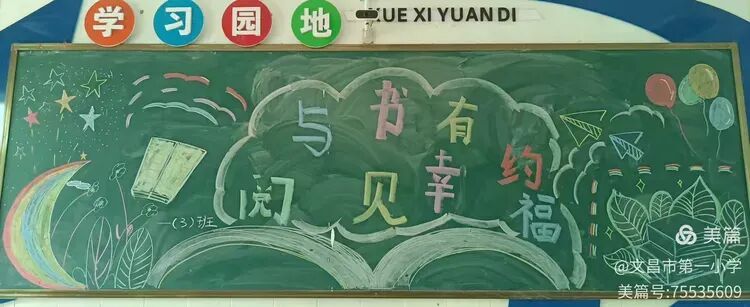 学习园地
XUE XI YUAN DI
与书有约
阅见幸福
一(3)班
美篇
@文昌市第一小学
美篇号:75535609